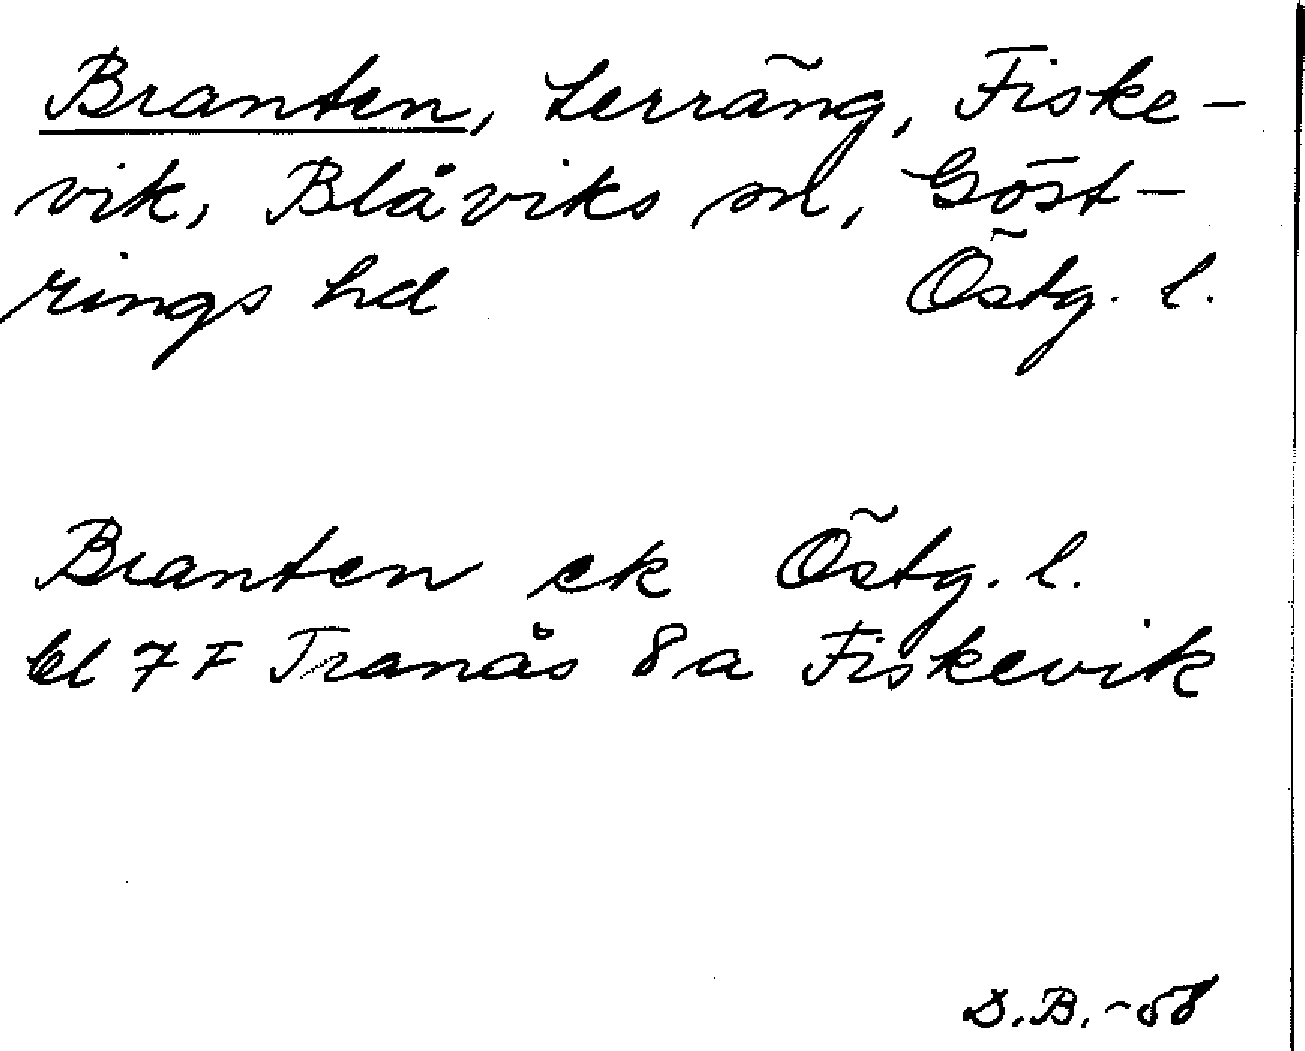 Branten, Terräng, Fiske-
vik, Blåviks sn, Göst-
rings hd Östg. l.
Branten ek Östg. l.
bl 7F Tranås 8a Fiskevik
D.B.-58